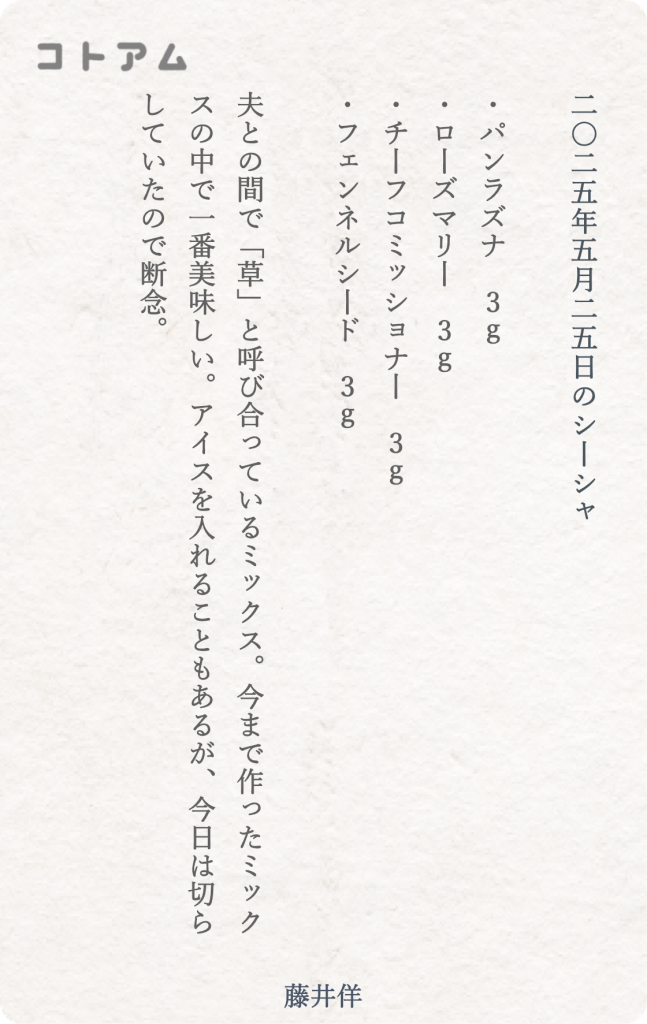 コトアム
二〇二五年五月二五日のシーシャ
・パンラズナ　3g
・ローズマリー　3g
・チーフコミッショナー　3g
・フェンネルシード　3g
夫との間で「草」と呼び合っているミックス。今まで作ったミック
スの中で一番美味しい。アイスを入れることもあるが、今日は切ら
していたので断念。
藤井佯